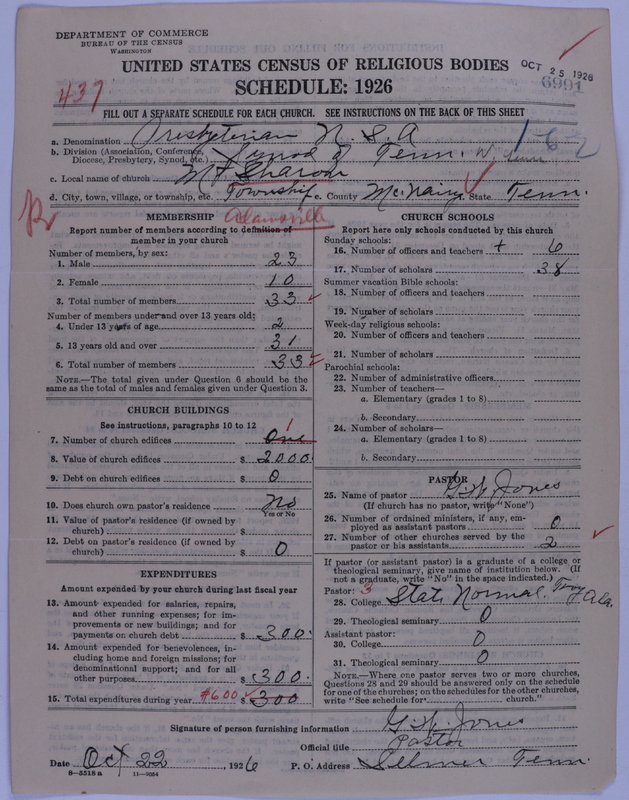 DEPARTMENT OF COMMERCE
BUREAU OF THE CENSUS
WASHINGTON
UNITED STATES CENSUS OF RELIGIOUS BODIES
SCHEDULE: 1926
OCT 25 1926
6991
437
FILL OUT A SEPARATE SCHEDULE FOR EACH CHURCH. SEE INSTRUCTIONS ON THE BACK OF THIS SHEET
a. Denomination Presbyterian U. S. A
1-6-2
b. Division (Association, Conference, Diocese, Presbytery, Synod, etc.) Synod of Tenn. W.
c. Local name of church Mt. Sharon
d. City, town, village, or township, etc. Township e. County McNairy State Tenn.
Adamsville
R
MEMBERSHIP
Report number of members according to definition of member in your church
Number of members, by sex:
1. Male 23
2. Female 10
3. Total number of members 33
Number of members under and over 13 years old:
4. Under 13 years of age 2
5. 13 years old and over 31
6. Total number of members 33
NOTE.—The total given under Question 6 should be the same as the total of males and females given under Question 3.
CHURCH BUILDINGS
See instructions, paragraphs 10 to 12
7. Number of church edifices One 1
8. Value of church edifices $ 2000.
9. Debt on church edifices $ 0
10. Does church own pastor's residence No
Yes or No
11. Value of pastor's residence (if owned by church) $
12. Debt on pastor's residence (if owned by church) $ 0
EXPENDITURES
Amount expended by your church during last fiscal year
13. Amount expended for salaries, repairs, and other running expenses; for improvements or new buildings; and for payments on church debt $ 300.
14. Amount expended for benevolences, including home and foreign missions; for denominational support; and for all other purposes $ 300.
15. Total expenditures during year $600 $ 300
CHURCH SCHOOLS
Report here only schools conducted by this church
Sunday schools:
16. Number of officers and teachers + 6
17. Number of scholars 38
Summer vacation Bible schools:
18. Number of officers and teachers
19. Number of scholars
Week-day religious schools:
20. Number of officers and teachers
21. Number of scholars
Parochial schools:
22. Number of administrative officers
23. Number of teachers—
a. Elementary (grades 1 to 8)
b. Secondary
24. Number of scholars—
a. Elementary (grades 1 to 8)
b. Secondary
PASTOR
25. Name of pastor G. W. Jones
(If church has no pastor, write "None")
26. Number of ordained ministers, if any, employed as assistant pastors 0
27. Number of other churches served by the pastor or his assistants 2
If pastor (or assistant pastor) is a graduate of a college or theological seminary, give name of institution below. (If not a graduate, write "No" in the space indicated.)
Pastor: 3
28. College State Normal. Troy Ala.
29. Theological seminary 0
Assistant pastor:
30. College 0
31. Theological seminary 0
NOTE.—Where one pastor serves two or more churches, Questions 28 and 29 should be answered only on the schedule for one of the churches; on the schedules for the other churches, write "See schedule for church."
Signature of person furnishing information G. W. Jones
Official title Pastor
Date Oct 22, 1926 P. O. Address Selmer Tenn.
8—5518a 11—9034